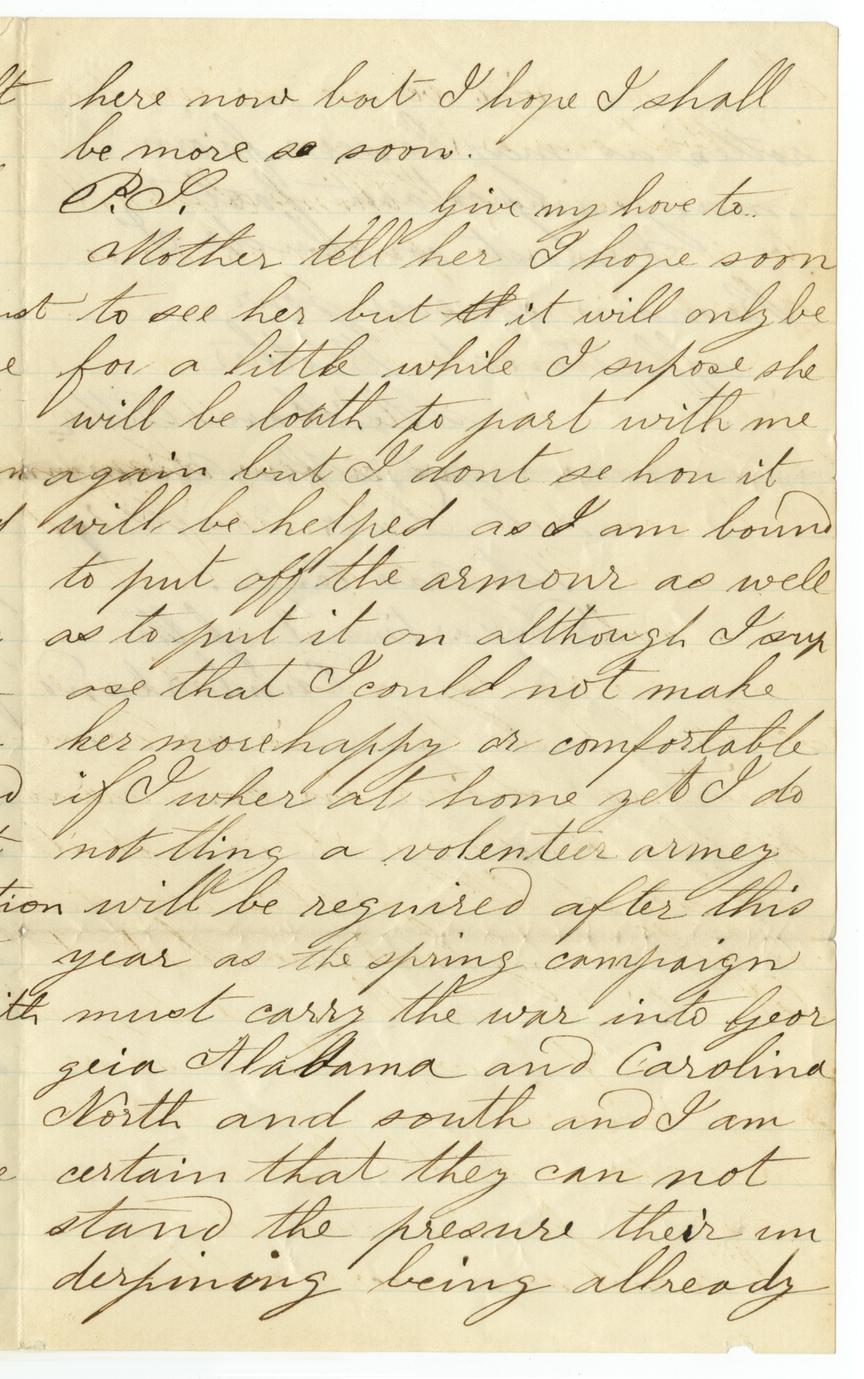 here now but I hope I shall
be more so soon.
P.S. Give my love to
Mother tell her I hope soon
to see her but it will only be
for a little while I supose she
will be loath to part with me
again but I dont se how it
will be helped as I am bound
to put off the armour as well
as to put it on although I sup
ose that I could not make
her more happy or comfortable
if I wher at home yet I do
not thing a volenteer armey
will be required after this
year as the spring campaign
must carry the war into Geor
geia Alabama and Carolina
North and south and I am
certain that they can not
stand the presure their un
derpinning being allready